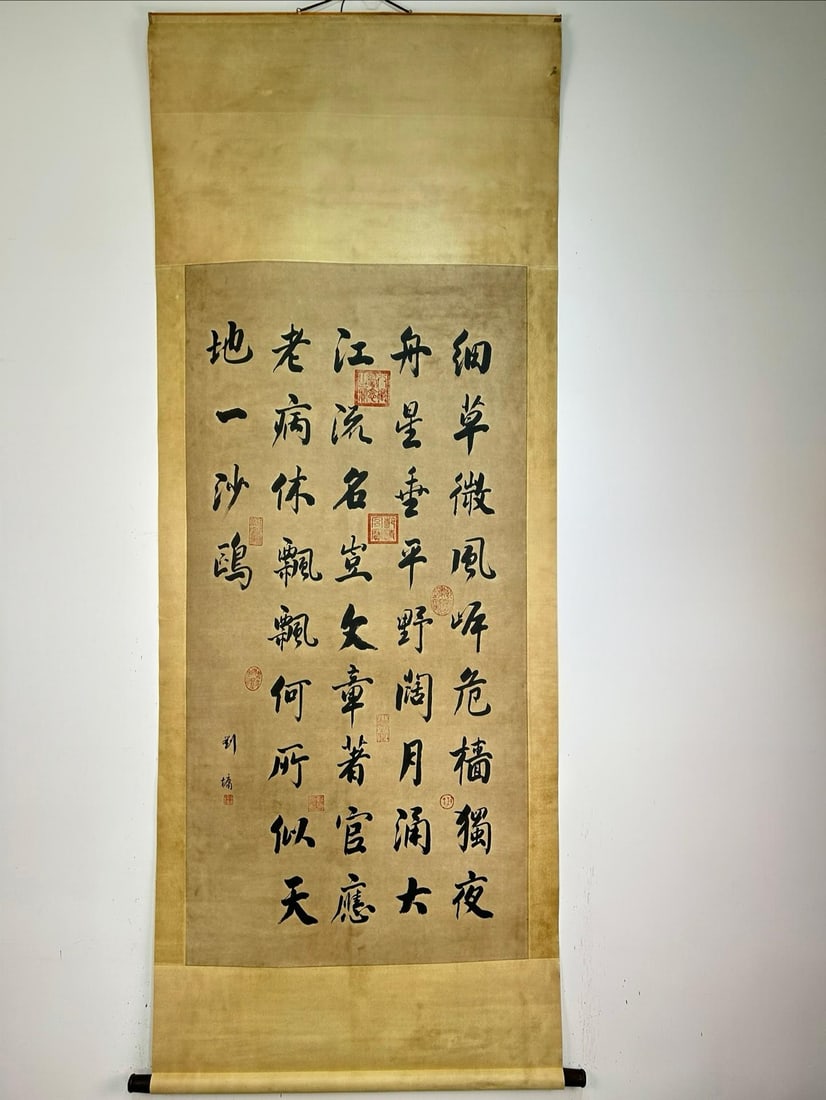 細草微風岸危檣獨夜
舟星垂平野闊月涌大
江流名豈文章著官應
老病休飄飄何所似天
地一沙鷗
劉墉